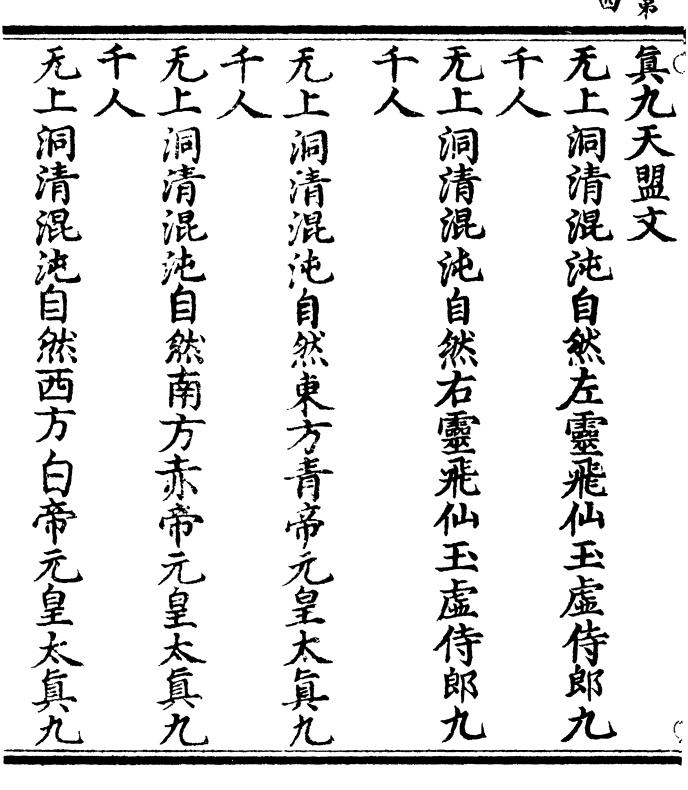 眞九天盟文
无上洞清混沌自然左靈飛仙玉虛侍郎九
千人
无上洞清混沌自然右靈飛仙玉虛侍郎九
千人
无上洞清混沌自然東方青帝元皇太眞九
千人
无上洞清混沌自然南方赤帝元皇太眞九
千人
无上洞清混沌自然西方白帝元皇太眞九